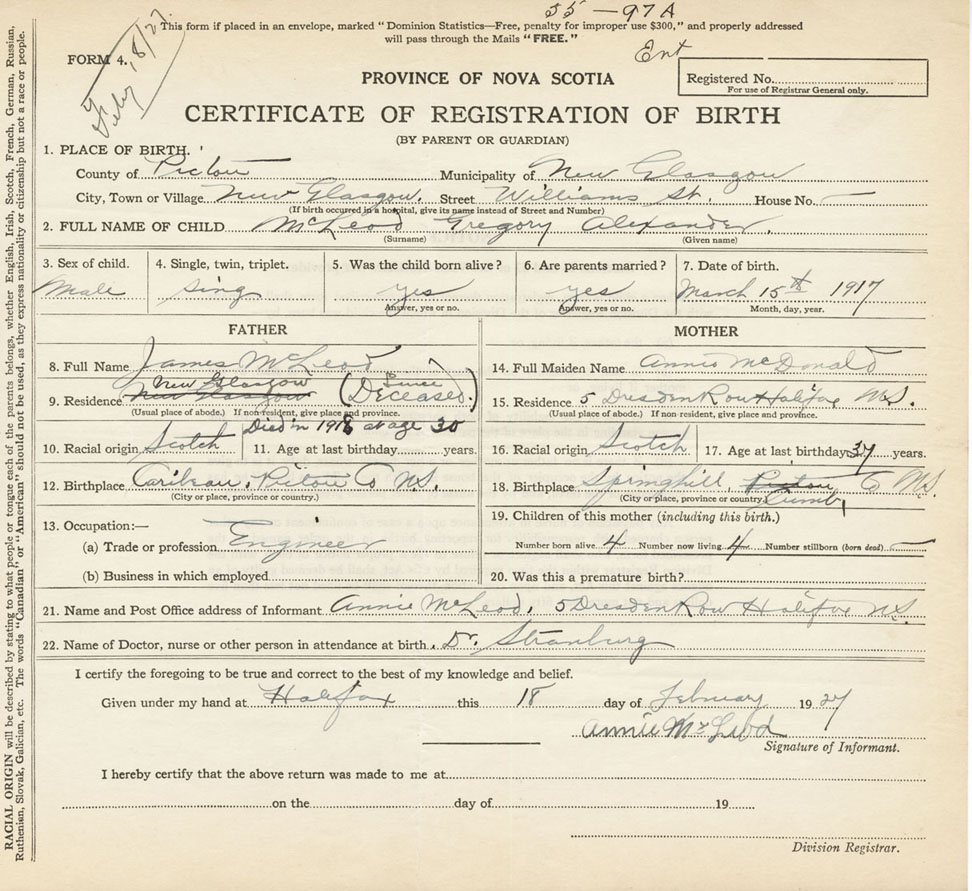 55-97A
This form if placed in an envelope, marked "Dominion Statistics—Free, penalty for improper use $300," and properly addressed
will pass through the Mails "FREE."
Feby 18/27
Ent
FORM 4.
PROVINCE OF NOVA SCOTIA
Registered No.
For use of Registrar General only.
CERTIFICATE OF REGISTRATION OF BIRTH
(BY PARENT OR GUARDIAN)
1. PLACE OF BIRTH.
County of Pictou Municipality of New Glasgow
City, Town or Village New Glasgow. Street Williams St. House No. —
(If birth occurred in a hospital, give its name instead of Street and Number)
2. FULL NAME OF CHILD McLeod Gregory Alexander.
(Surname) (Given name)
3. Sex of child. 4. Single, twin, triplet. 5. Was the child born alive? 6. Are parents married? 7. Date of birth.
Male Sing yes yes March 15th 1917
Answer, yes or no. Answer, yes or no. Month, day, year.
FATHER MOTHER
8. Full Name James McLeod
New Glasgow (Since
9. Residence New Glasgow Deceased.)
(Usual place of abode.) If non-resident, give place and province.
Died in 1918 at age 30
10. Racial origin Scotch 11. Age at last birthday years.
12. Birthplace Caribeau, Pictou Co N.S.
(City or place, province or country.)
13. Occupation:—
(a) Trade or profession Engineer
(b) Business in which employed
14. Full Maiden Name Annie McDonald
15. Residence 5 Dresden Row Halifax N.S.
(Usual place of abode.) If non-resident, give place and province.
16. Racial origin Scotch 17. Age at last birthday 37 years.
18. Birthplace Springhill, Pictou Co N.S.
(City or place, province or country.) Cumb
19. Children of this mother (including this birth.)
Number born alive 4 Number now living 4 Number stillborn (born dead) —
20. Was this a premature birth?
21. Name and Post Office address of Informant Annie McLeod, 5 Dresden Row Halifax N.S.
22. Name of Doctor, nurse or other person in attendance at birth. Dr. Stranburg
I certify the foregoing to be true and correct to the best of my knowledge and belief.
Given under my hand at Halifax this 18 day of February 1927
Annie McLeod
Signature of Informant.
I hereby certify that the above return was made to me at
on the day of 19
Division Registrar.
RACIAL ORIGIN will be described by stating to what people or tongue each of the parents belongs, whether English, Irish, Scotch, French, German, Russian,
Ruthenian, Slovak, Galician, etc. The words "Canadian" or "American" should not be used, as they express nationality or citizenship but not a race or people.